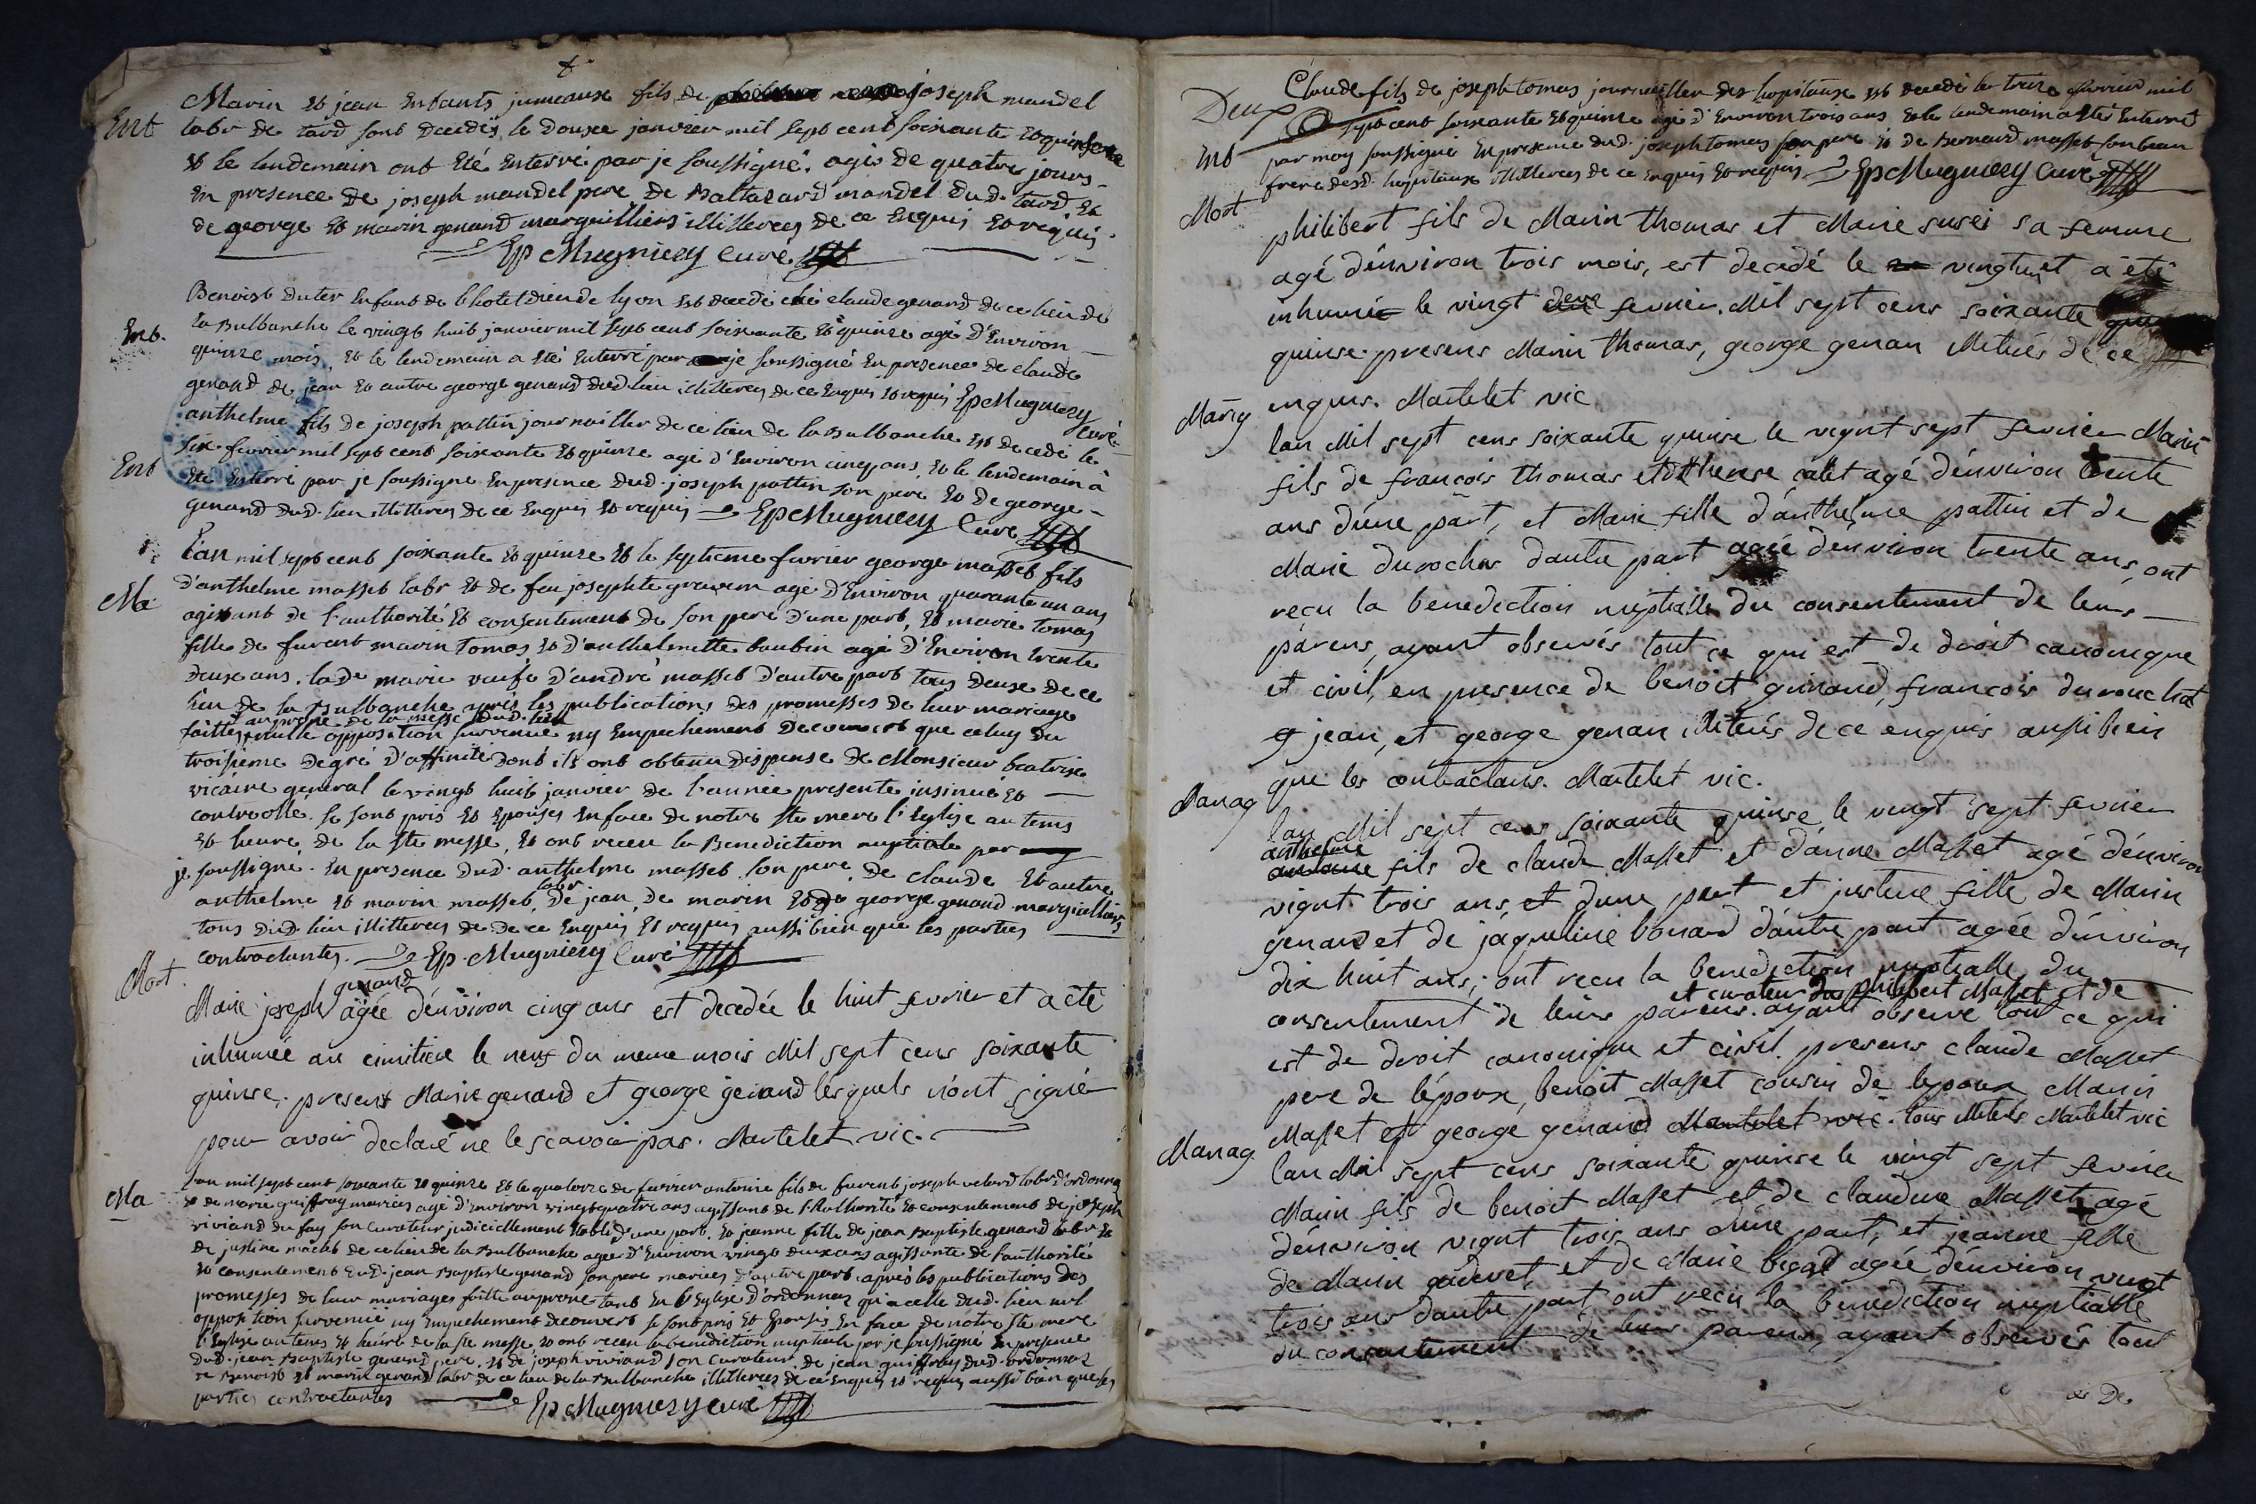 Marin et jean Enfants jumeaux fils de joseph mandel
Ent
labr de tard sont decedés le douze janvier mil sept cent soixante et quinse
et le lendemain ont été Enterré par je soussigné. agés de quatre jours
En presence de joseph mandel pere de Baltazard mandel dud. tard et
de george et marin genand marguilliers illitterés de ce Enquis et requis.
Ep Mugniery Curé
Benoist duter Enfant de l'hotel dieu de lyon est decedé ché claude genand de ce lieu de
Ent.
la Bulbanche le vingt huit janvier mil sept cent soixante et quinze agé d'Environ
quinze mois et le lendemain a été Enterré par je soussigné En presence de claude
genand de jean et autre george genand dud. lieu illitterés de ce Enquis et requis Ep Mugniery
curé
anthelme fils de joseph pattin journailler de ce lieu de la Bulbanche est decedé le
Ent
six fevrier mil sept cent soixante et quinze agé d'Environ cinq ans et le lendemain a
été Enterré par je soussigné En presence dud. joseph pattin son pere et de george
genand dud. lieu illitterés de ce Enquis et requis Ep Mugniery Curé
L'an mil sept cent soixante et quinze et le septieme fevrier george masset fils
Ma
d'anthelme masset labr et de feu josephte agé d'Environ quarante un ans
agissant de l'authorité et consentement de son pere d'une part, et marie tomas
fille de furent marin tomas et d'anthelmette baubin agé d'Environ trente
deux ans. lade marie veufe d'andré masset d'autre part tous deux de ce
lieu de la Bulbanche après les publications des promesses de leur mariage
au prone de la messe dud. lieu
faittes nulle opposition survenue ny Empechement decouvert que celuy du
troisieme degré d'affinité dont ils ont obtenu dispense de Monsieur beatrix
vicaire general le vingt huit janvier de l'année presente insinué et
controollé. se sont pris et Epousés En face de notre Ste mere l'Eglise au tems
et heure de la Ste messe, et ont receu la Benediction nuptiale par
je soussigné. En presence dud. anthelme masset son pere, de claude et autre
labr
anthelme et marin masset, de jean, de marin et de george genand marguilliers
tous dud. lieu illitterés de de ce Enquis et requis aussi bien que les parties
contractantes. Ep. Mugniery Curé
Mort.
genand
Marie joseph agée d'énviron cinq ans est decedée le huit fevrier et a été
inhumée au cimitiere le neuf du meme mois Mil sept cens soixante
quinse. presens Marin genand et george genand lésquels n'ont signé
pour avoir declaré ne le scavoir pas. Martelet vic.
Ma
L'an mil sept cent soixante et quinze et le quatorze de fevrier antoine fils de furent joseph velard labr d'ordonnaz
et de marie guiffray mariés agé d'Environ vingt quatre ans agissant de l'Authorité et consentement de joseph
viviand du fay son curateur judiciellement Etabli d'une part. et jeanne fille de jean Baptiste genand labr et
de justine maclet de ce lieu de la Bulbanche agée d'Environ vingt deux ans agissante de l'authorité
et consentement dud. jean Baptiste genand son pere mariés d'autre part. après les publications des
promesses de leur mariages faitte au prone tant En l'Eglise d'ordonnaz qu'a celle dud. lieu nul
opposition survenüe ny Empechement decouvert se sont pris et Epousés En face de notre Ste mere
l'Eglise au tems et heure de la Ste messe et ont receu la benediction nuptiale par je soussigné En presence
dud. jean Baptiste genand pere, et de joseph viviand son curateur, de jean guiffray dud. ordonnaz
de Benoist et marin genand labr de ce lieu de la Bulbanche illitterés de ce Enquis et requis aussi bien que les
parties contractantes Ep Mugniery curé
Claude fils de joseph tomas journailler des hopitaux est decedé le treize fevrier mil
Deux
sept cent soixante et quinze agé d'Environ trois ans et le lendemain a été Enterré
Ent
par moy soussigné En presence dud. joseph tomas son pere et de Bernard masset son beau
frere desd. hopitaux illitterés de ce Enquis et requis Ep Mugniery Curé
Mort
philibert fils de Marin thomas et Marie susei sa femme
agé d'énviron trois mois, est decedé le vingt et a été
inhumé le vingt fevrier. Mil sept cens soixante
quinse. presens Marin thomas, george genan illiterés de ce
enquis. Martelet vic
Mariag
lan Mil sept cens soixante quinse le vignt sept fevrier Marin
fils de francois thomas et d'therese calet agé d'énviron trente
ans d'une part, et Marie fille d'anthelme pattin et de
Marie durochas dautre part agée denviron trente ans, ont
reçu la benediction nuptialle du consentement de leurs
parens, ayant observés tout ce qui est de droit canonique
et civil, en presence de benoit guinand, francois durouchat
jean, et george genan illiterés de ce enquis aussi bien
que les contractans. Martelet vic.
Mariag
lan Mil sept cens soixante quinse le vingt sept fevrier
anthelme
fils de claude Masset et d'anne Masset agé d'énviron
vignt trois ans, et dune part et justine fille de Marin
genand et de jaqueline bonard d'autre part agée d'énviron
dix huit ans; ont recu la benediction nuptialle du
et curateur philibert Masset et de
consentement de leurs parens. ayant observé tout ce qui
est de droit canonique et civil. presens claude Masset
pere de l'époux, benoit Masset cousin de lepoux Marin
Masset et george genand Martelet vic. tous illiterés Martelet vic
Mariag
lan Mil sept cens soixante quinse le vingt sept fevrier
Marin fils de benoit Masset et de claudine Masset agé
d'énviron vignt trois ans d'une part, et jeanne fille
de Marin gudevet, et de Marie begad agée d'énviron vingt
trois ans dautre part ont recu la benediction nuptialle
du consentement de leurs parens, ayant observés tout
ce De